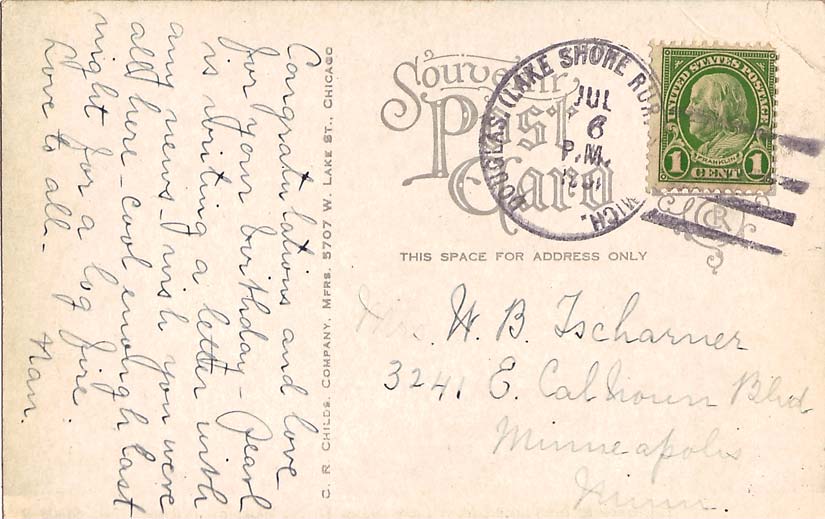 Congratulations and love
for your birthday - Pearl
is writing a letter with
any news - I wish you were
all here - cool enough last
night for a log fire.
Love to all - Nan.
C. R. CHILDS COMPANY, MFRS. 5707 W. LAKE ST., CHICAGO
Souvenir
Post
Card
DOUGLAS (LAKE SHORE RUR.
MICH.
JUL
6
P.M.
UNITED STATES POSTAGE
FRANKLIN
1 CENT 1
CR
THIS SPACE FOR ADDRESS ONLY
Mrs. W. B. Tscharner
3241 E. Calhoun Blvd
Minneapolis
Minn.